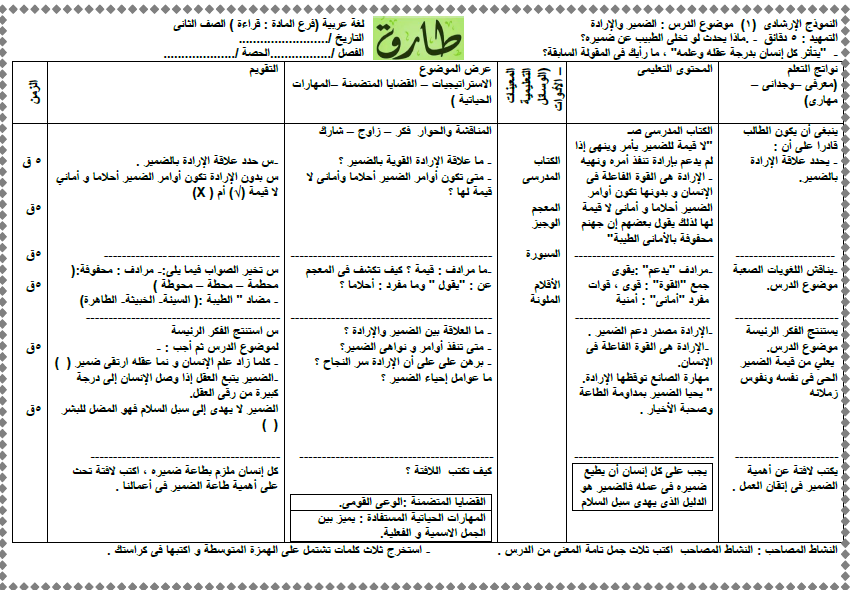 النموذج الإرشادى (١) موضوع الدرس : الضمير والإرادة
طارق
لغة عربية (فرع المادة : قراءة ) الصف الثانى
التمهيد : ٥ دقائق - .ماذا يحدث لو تخلى الطبيب عن ضميره؟
التاريخ /.........................
- "يتأثر كل إنسان بدرجة عقله وعلمه" ، ما رأيك فى المقولة السابقة؟
الفصل /.................الحصة /....................
نواتج التعلم
(معرفى –وجدانى –
مهارى)
المحتوى التعليمى
المعينات
(الوسائل التعليمية
– الأدوات
عرض الموضوع
الاستراتيجيات – القضايا المتضمنة –المهارات
الحياتية )
التقويم
الزمن
ينبغى أن يكون الطالب
قادرا على أن :
- يحدد علاقة الإرادة
بالضمير.
-يناقش اللغويات الصعبة
موضوع الدرس.
يستنتج الفكر الرئيسة
موضوع الدرس.
يعلي من قيمة الضمير
الحى فى نفسه ونفوس
زملائه
يكتب لافتة عن أهمية
الضمير فى إتقان العمل .
الكتاب المدرسى صـ
"لا قيمة للضمير يأمر وينهى إذا
لم يدعم بإرادة تنفذ أمره ونهيه
- الإرادة هى القوة الفاعلة فى
الإنسان و بدونها تكون أوامر
الضمير أحلاما و أمانى لا قيمة
لها لذلك يقول بعضهم إن جهنم
محفوفة بالأمانى الطيبة"
-مرادف "يدعم" :يقوى
جمع "القوة" : قوى ، قوات
مفرد "أمانى" : أمنية
-الإرادة مصدر دعم الضمير .
- الإرادة هى القوة الفاعلة فى
الإنسان.
مهارة الصانع توقظها الإرادة.
" يحيا الضمير بمداومة الطاعة
وصحبة الأخيار .
يجب على كل إنسان أن يطيع
ضميره فى عمله فالضمير هو
الدليل الذى يهدى سبل السلام
الكتاب
المدرسى
المعجم
الوجيز
السبورة
الأقلام
الملونة
المناقشة والحوار فكر – زاوج – شارك
- ما علاقة الإرادة القوية بالضمير ؟
- متى تكون أوامر الضمير أحلاما وأمانى لا
قيمة لها ؟
-ما مرادف : قيمة ؟ كيف تكشف فى المعجم
عن : "يقول " وما مفرد : أحلاما ؟
- ما العلاقة بين الضمير والإرادة ؟
- متى تنفذ أوامر و نواهى الضمير؟
- برهن على على أن الإرادة سر النجاح ؟
ما عوامل إحياء الضمير ؟
كيف تكتب اللافتة ؟
القضايا المتضمنة :الوعى القومى.
المهارات الحياتية المستفادة : يميز بين
الجمل الاسمية و الفعلية.
-س حدد علاقة الإرادة بالضمير .
س بدون الإرادة تكون أوامر الضمير أحلاما و أماني
لا قيمة (√) أم ( X)
س تخير الصواب فيما يلى:- مرادف : محفوفة:(
محطمة – محطة – محوطة )
- مضاد " الطيبة :( السيئة- الخبيثة- الطاهرة)
س استنتج الفكر الرئيسة
لموضوع الدرس ثم أجب : -
- كلما زاد علم الإنسان و نما عقله ارتقى ضمير ( )
-الضمير يتبع العقل إذا وصل الإنسان إلى درجة
كبيرة من رقى العقل.
الضمير لا يهدى إلى سبل السلام فهو المضل للبشر
( )
كل إنسان ملزم بطاعة ضميره ، اكتب لافتة تحث
على أهمية طاعة الضمير فى أعمالنا .
٥ ق
٥ق
٥ق
٥ق
٥ق
٥ق
النشاط المصاحب : النشاط المصاحب اكتب ثلاث جمل تامة المعنى من الدرس .
- استخرج ثلاث كلمات تشتمل على الهمزة المتوسطة و اكتبها فى كراستك .